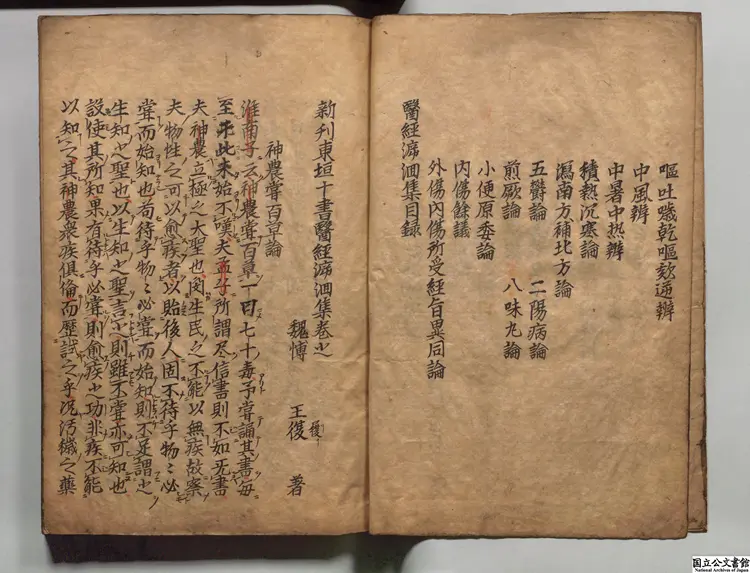 嘔吐噦乾嘔欬逆辨
中風辨
中暑中热辨
積熱沉寒論
瀉南方補北方論
五欝論 二陽病論
煎厥論 八味丸論
小便原委論
内傷餘議
外傷内傷所受經旨異同論
醫經溯洄集目録
新刊東垣十書醫經溯洄集卷之
魏博 王復 著
神農嘗百草論
淮南子云神農嘗百草一日七十毒予嘗誦其書每
至於此未始不嘆夫孟子所謂尽信書則不如无書
夫神農立極之大聖也閔生民之不能以無疾故察
夫物性之可以愈疾者以貽後人固不待乎物々必
嘗而始知也苟待乎物々必嘗而始知則不足謂之
生知之聖也以生知之聖言之則雖不嘗亦可知也
設使其所知果有待乎必嘗則愈疾之功非疾不能
以知之其神農衆疾俱備而歴試之乎況汚穢之藥
国立公文書館
National Archives of Japan